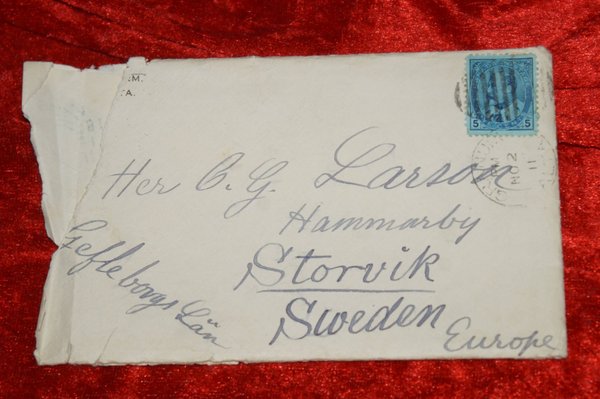 RM.
TA.
5 5
NO 2
11
Her C. G. Larson
Hammarby
Storvik
Sweden
Europe
Gefleborgs Län